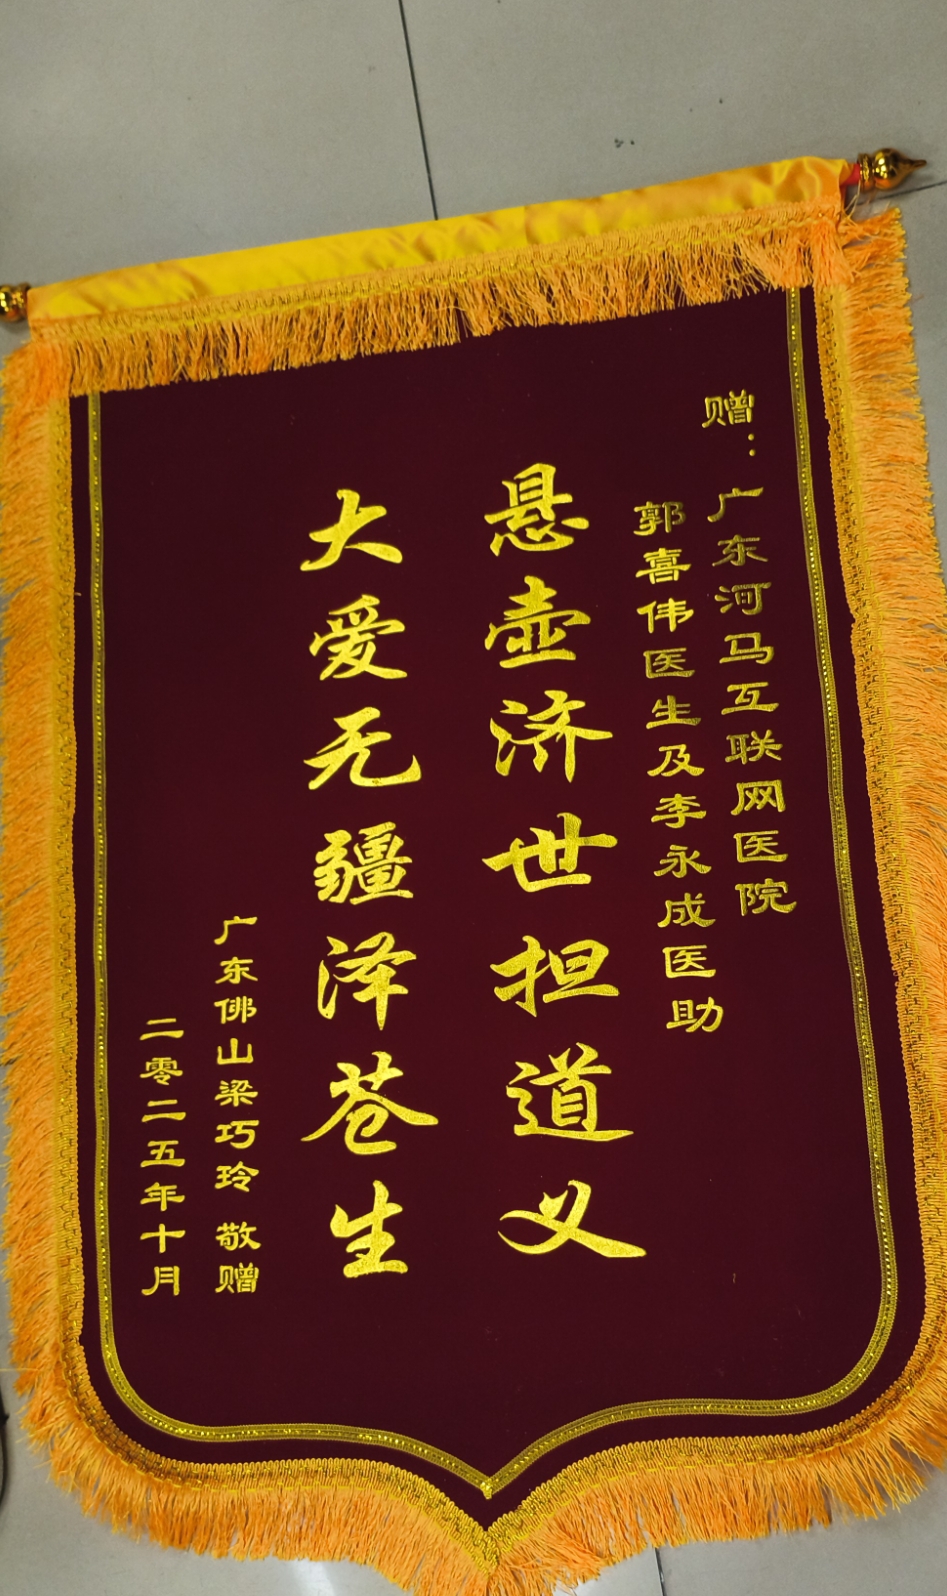 赠：广东河马互联网医院
郭喜伟医生及李永成医助
悬壶济世担道义
大爱无疆泽苍生
广东佛山梁巧玲 敬赠
二零二五年十月